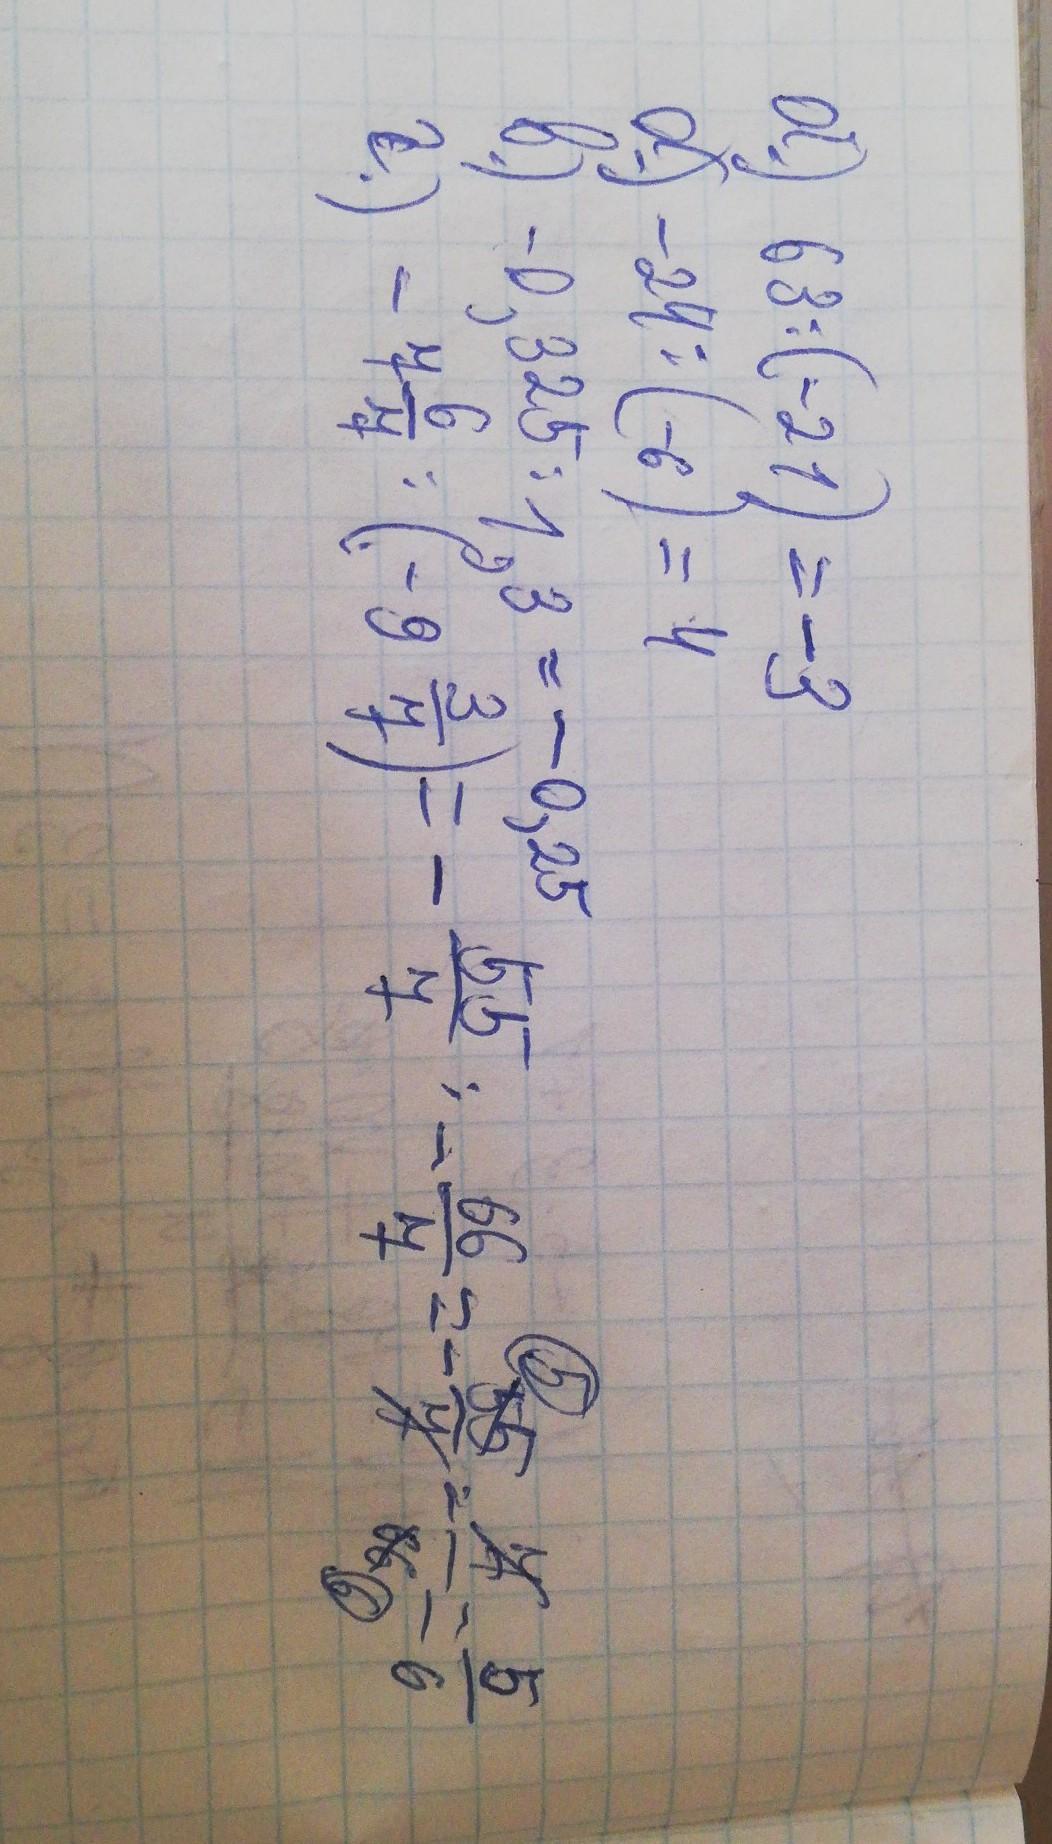 а.) 63 : (-21) = -3
б.) -24 : (-6) = 4
в.) -0,325 : 1,3 = -0,25
г.) -7 6/7 : (-9 3/7) = - 55/7 : - 66/7 = - 55/7 · - 7/66 = 5/6